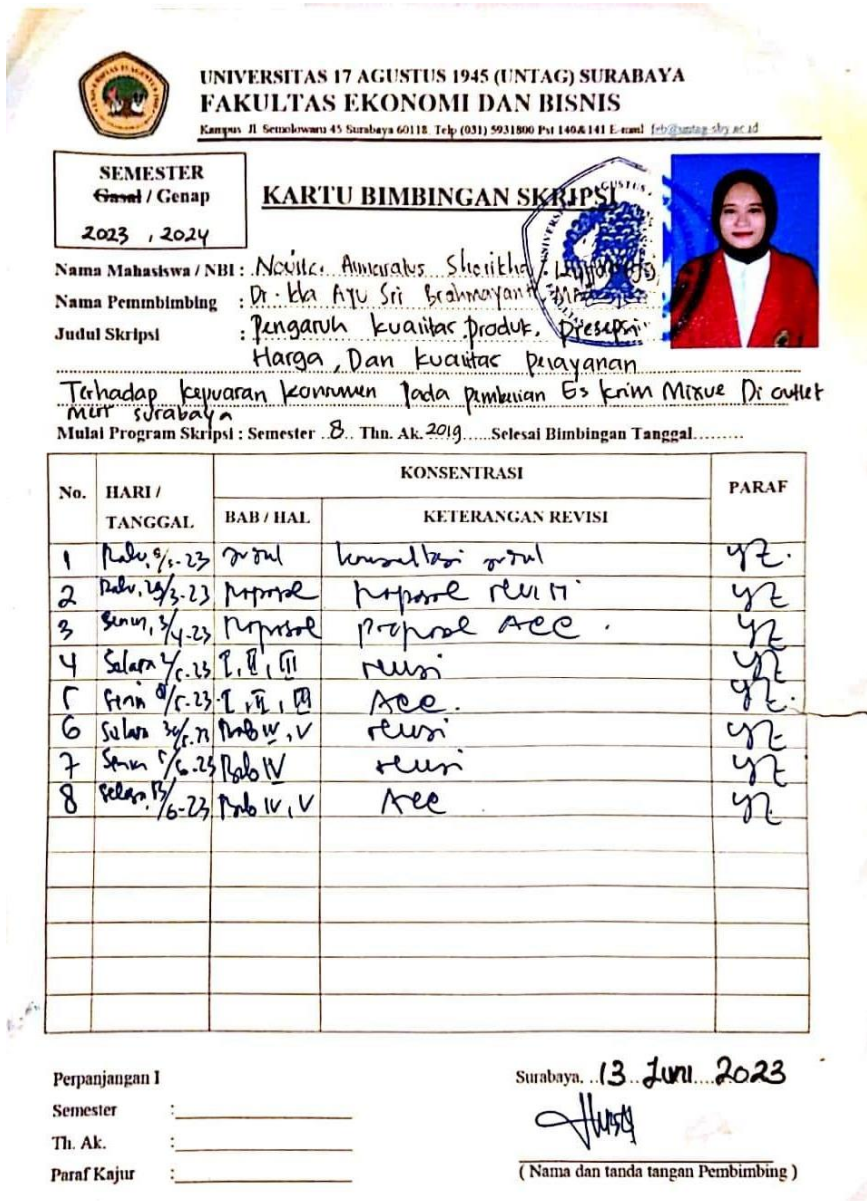 UNIVERSITAS 17 AGUSTUS 1945 (UNTAG) SURABAYA
FAKULTAS EKONOMI DAN BISNIS
Kampus Jl. Semolowaru 45 Surabaya 60118. Telp (031) 5931800 Pst 140&141 E-mail feb@untag-sby.ac.id
SEMESTER
Gasal / Genap
2023 , 2024
KARTU BIMBINGAN SKRIPSI
Nama Mahasiswa / NBI :
Nama Pemmbimbing : Dr. Ida Ayu Sri Brahmayanti, MM
Judul Skripsi : Pengaruh kualitas produk, Presepsi
Harga, Dan kualitas pelayanan
Terhadap keputusan konsumen Pada pembelian Es krim Mixue Di outlet
Merr Surabaya
Mulai Program Skripsi : Semester 8 Thn. Ak. 2019 Selesai Bimbingan Tanggal
No. HARI / TANGGAL KONSENTRASI PARAF
BAB / HAL KETERANGAN REVISI
1 Rabu, /3-23 judul konsultasi judul
2 Rabu, 29/3-23 proposal proposal revisi
3 Senin, 3/4-23 Proposal proposal Acc.
4 Selasa /5-23 I, II, III revisi
5 Senin 8/5-23 I, II, III Acc.
6 Selasa 30/5-23 Bab IV, V revisi
7 Senin 5/6-23 Bab IV revisi
8 Selasa, 13/6-23 Bab IV, V Acc
Perpanjangan I
Semester :
Th. Ak. :
Paraf Kajur :
Surabaya, 13 Juni 2023
( Nama dan tanda tangan Pembimbing )